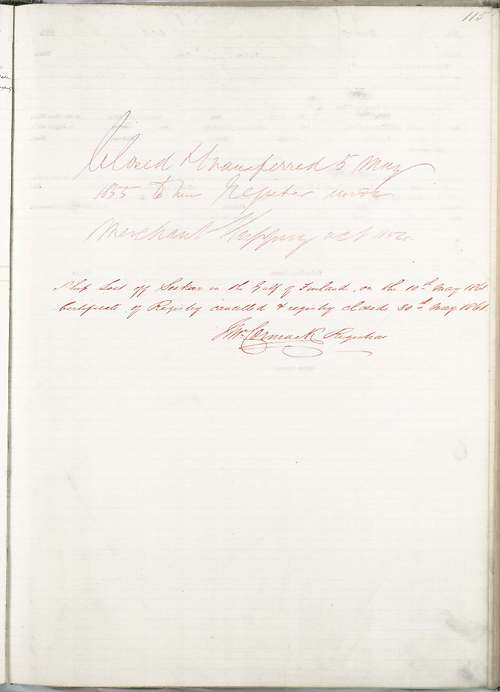 115
Closed & transferred 5 May
1855 to New Register under
Merchant Shipping act 1854
Ship Lost off Seskar in the Gulf of Finland, on the 10th May 1861
Certificate of Registry cancelled & registry closed 30th May 1861
McCormack Registrar